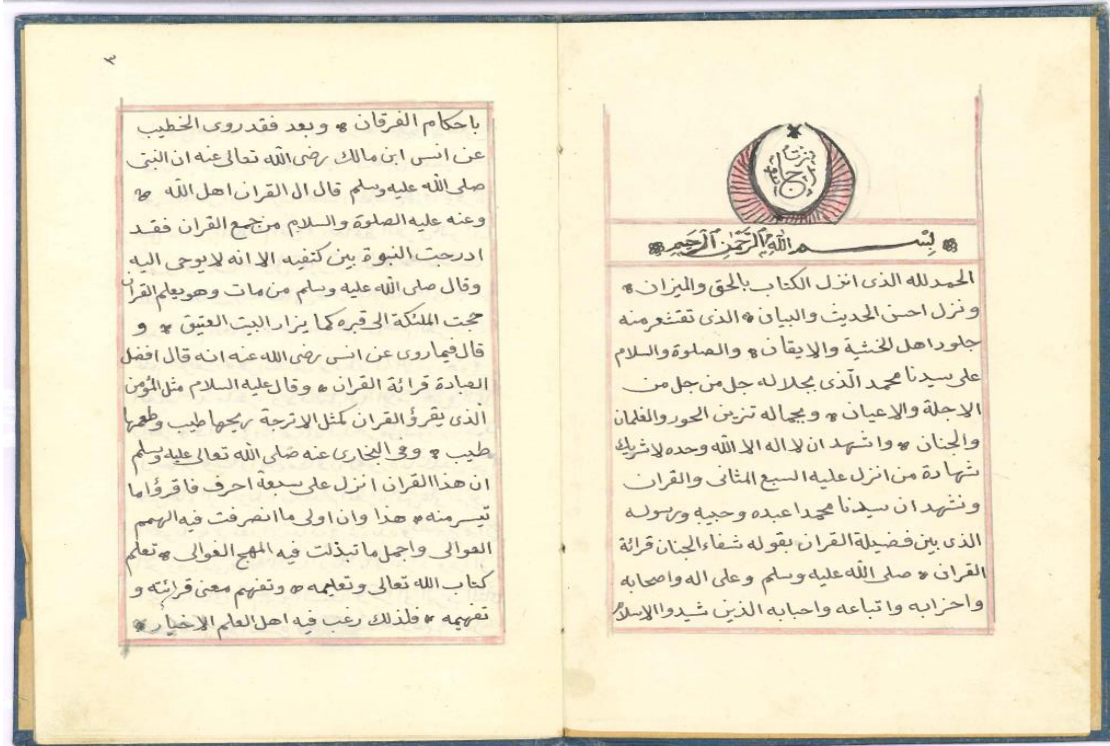 بسم الله الرحمن الرحيم
الحمد لله الذى انزل الكتاب بالحق والميزان
ونزل احسن الحديث والبيان الذى تقشعر منه
جلود اهل الخشية والايقان والصلوة والسلام
على سيدنا محمد الذى بجلاله جل من جل من
الاجلة والاعيان وبجماله تزين الحور والغلمان
والجنان واشهد ان لا اله الا الله وحده لا شريك
شهادة من انزل عليه السبع المثانى والقران
ونشهد ان سيدنا محمدا عبده وحبيبه ورسوله
الذى بين فضيلة القران بقوله شفاء الجنان قرائة
القران صلى الله عليه وسلم وعلى اله واصحابه
واحزابه واتباعه واحبابه الذين شيدوا الاسلام
٣
باحكام الفرقان وبعد فقد روى الخطيب
عن انس ابن مالك رضى الله تعالى عنه ان النبى
صلى الله عليه وسلم قال ال القران اهل الله
وعنه عليه الصلوة والسلام من جمع القران فقد
ادرجت النبوة بين كتفيه الا انه لا يوحى اليه
وقال صلى الله عليه وسلم من مات وهو يعلم القران
حجت الملئكة الى قبره كما يزار البيت العتيق و
قال فيما روى عن انس رضى الله عنه انه قال افضل
العبادة قرائة القران وقال عليه السلام مثل المؤمن
الذى يقرؤ القران كمثل الاترجة ريحها طيب وطعمها
طيب وفى البخارى عنه صلى الله تعالى عليه وسلم
ان هذا القران انزل على سبعة احرف فاقرؤا ما
تيسر منه هذا وان اولى ما انصرفت فيه الهمم
العوالى واجمل ما تبذلت فيه المهج الغوالى تعلم
كتاب الله تعالى وتعليمه وتفهم معنى قرائته و
تفهيمه فلذلك رغب فيه اهل العلم الاخيار